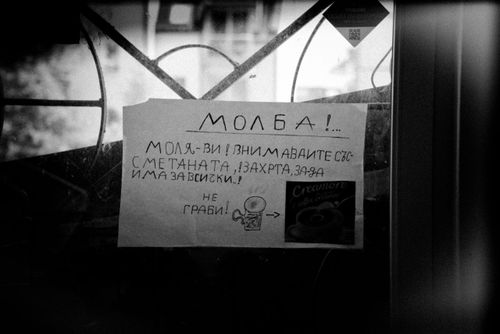 МОЛБА!...
МОЛЯ-ВИ! ВНИМАВАЙТЕ СЪС
СМЕТАНАТА,!ЗАХРТА, ЗА ДА
ИМА ЗА ВСИЧКИ..!
НЕ
ГРАБИ!